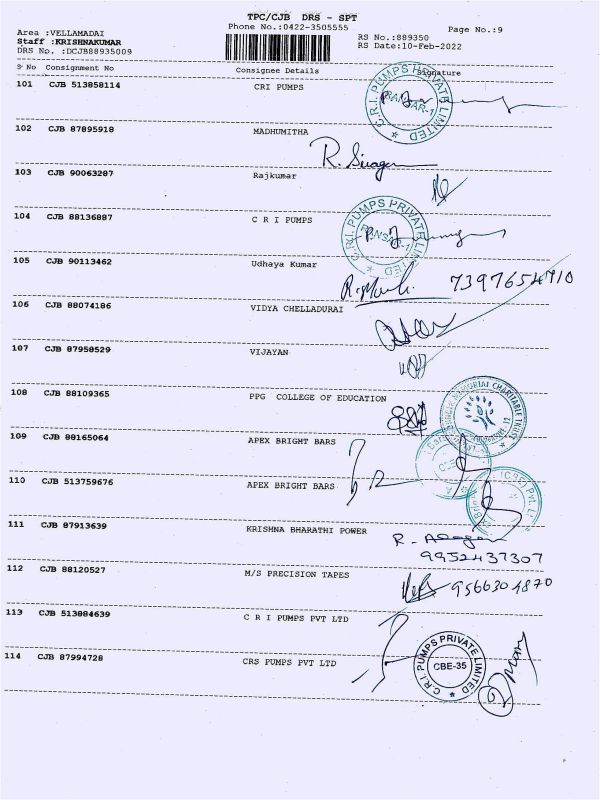 TPC/CJB DRS - SPT
Phone No.:0422-3505555
Page No.:9
Area :VELLAMADAI
Staff :KRISHNAKUMAR
DRS No. :DCJB88935009
RS No.:889350
RS Date:10-Feb-2022
S No Consignment No Consignee Details Signature
101 CJB 513858114 CRI PUMPS
C.R.I. PUMPS PRIVATE LIMITED
102 CJB 87895918 MADHUMITHA
103 CJB 90063287 Rajkumar
104 CJB 88136887 C R I PUMPS
C.R.I. PUMPS PRIVATE LIMITED
105 CJB 90113462 Udhaya Kumar
7397654710
106 CJB 88074186 VIDYA CHELLADURAI
107 CJB 87958529 VIJAYAN
108 CJB 88109365 PPG COLLEGE OF EDUCATION
MEMORIAL CHARITABLE TRUST
109 CJB 88165064 APEX BRIGHT BARS
110 CJB 513759676 APEX BRIGHT BARS
111 CJB 87913639 KRISHNA BHARATHI POWER
9952437307
112 CJB 88120527 M/S PRECISION TAPES
9566304870
113 CJB 513884639 C R I PUMPS PVT LTD
114 CJB 87994728 CRS PUMPS PVT LTD
C.R.I. PUMPS PRIVATE LIMITED
CBE-35